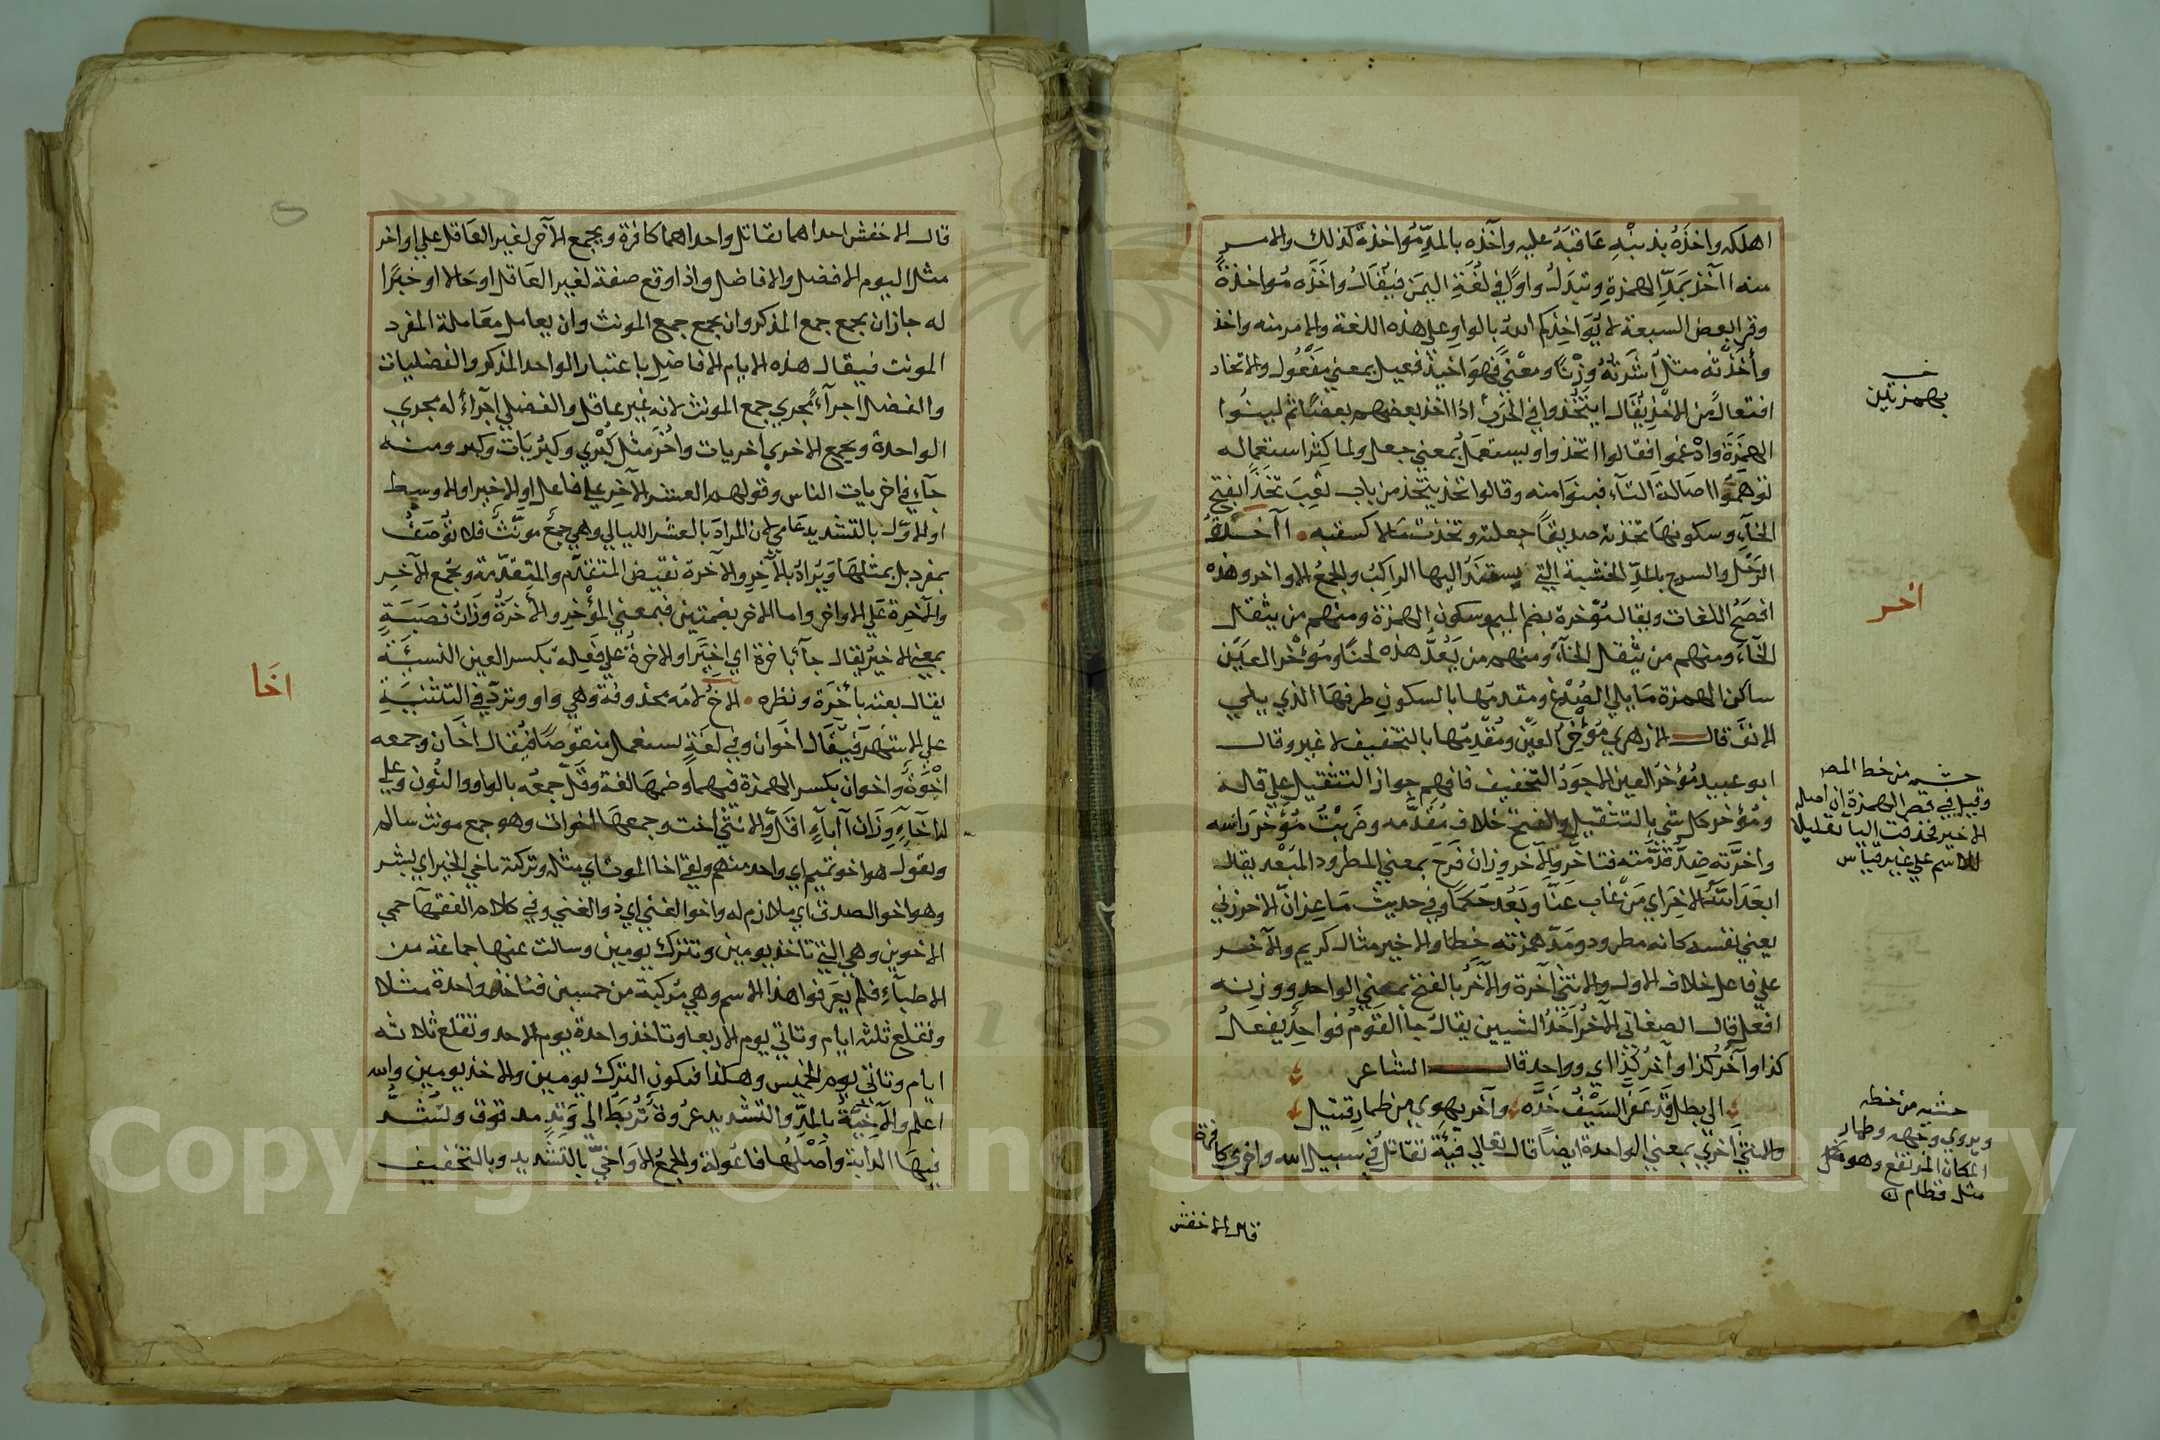 اهلكه واخذه بذنبه عاقبه عليه وآخذه بالمد مؤاخذة كذلك والامر
منه آخذ بمد الهمزة وتبدل واوا في لغة اليمن فيقال واخذه مواخذة
وقرا بعض السبعة لا يواخذكم الله بالواو على هذه اللغة والامر منه واخذ
وأخذته مثل أسرته وزنا ومعنى فهو اخيذ فعيل بمعني مفعول والاتخاذ
افتعال من الاخذ يقال ايتخذوا في الحرب اذا اخذ بعضهم بعضا ثم لينوا
الهمزة وادغموا فقالوا اتخذوا ويستعمل بمعني جعل ولما كثر استعماله
توهموا اصالة التآء فبنوا منه وقالوا تخذ يتخذ من باب تعب تخذا بفتح
الخآء وسكونها تخذته صديقا جعلته وتخذت مالا كسبته اآخرة
الرحل والسرج بالمد الخشبة التي يستند اليها الراكب والجمع الاواخر وهذه
افصح اللغات ويقال مؤخرة بضم الميم وسكون الهمزة ومنهم من يثقل
الخآء ومنهم من يعد هذه لحنا ومؤخر العين
ساكن الهمزة ما يلي الصدغ ومقدمها بالسكون طرفها الذي يلي
الانف قال الازهري مؤخر العين ومقدمها بالتخفيف لا غير وقال
ابو عبيد مؤخر العين الاجود التخفيف فافهم جواز التثقيل على قلة
ومؤخر كل شي بالتثقيل والفتح خلاف مقدمه وضربت مؤخر راسه
واخرته ضد قدمته فتاخر والاخر وزان فرح بمعني المطرود المبعد يقال
ابعد الله الاخر اي من غاب عنا وبعد حكما وفي حديث ماعز ان الاخر زني
يعني نفسه كانه مطرود ومد همزته خطا والاخير مثال كريم والآخر
علي فاعل خلاف الاول والانثي آخرة والآخر بالفتح بمعني الواحد ووزنه
افعل قال الصغاني الآخر احد الشيين يقال جآ القوم فواحد يفعل
كذا وآخر كذا وآخر كذا اي وواحد قال الشاعر
الي بطل قد عفر السيف خده وآخر يهوي من طمار قتيل
والانثي اخري بمعني الواحدة ايضا قال تعالي فئة تقاتل في سبيل الله واخري كافرة
قال الاخفش
بهمزتين
اخر
حشيه من خط المص
وقيل في قصر الهمزة ان اصله
الاخير فحذفت اليآ تقليلا
للاسم علي غير قياس
حشيه من خطه
ويروي وجهه وطمار
المكان المرتفع وهو
مثل قطام
قال الاخفش احداهما تقاتل واحداهما كافرة ويجمع الآخر لغير العاقل علي اواخر
مثل اليوم الافضل والافاضل واذا وقع صفة لغير العاقل او حالا او خبرا
له جاز ان يجمع جمع المذكر وان يجمع جمع المونث وان يعامل معاملة المفرد
المونث فيقال هذه الايام الافاضل باعتبار الواحد المذكر والفضليات
والفضل اجرآء مجري جمع المونث لانه غير عاقل والفضلي اجرآء له مجري
الواحدة ويجمع الاخري اخريات واخر مثل كبري وكبريات وكبر ومنه
جآء في اخريات الناس وقولهم العشر الآخر علي فاعل او الاخير او الاوسط
او الاول بالتشديد عامي لان المراد بالعشر الليالي وهي جمع مونث فلا توصف
بمفرد بل بمثلها ويراد بالآخر والآخرة نقيض المتقدم والمتقدمة ويجمع الآخر
والآخرة علي الاواخر واما الاخر بضمتين فبمعني المؤخر والأخرة وزان قصبة
بمعني الاخير يقال جآ باخرة اي اخيرا والاخرة علي فعلة بكسر العين النسيئة
يقال بعته باخرة ونظرة الاخ لامه محذوفة وهي واو وترد في التثنية
علي الاشهر فيقال اخوان وفي لغة يستعمل منقوصا فيقال اخان وجمعه
اخوة واخوان بكسر الهمزة فيهما وضمها لغة وقل جمعه بالواو والنون وعلي
اآخآء وزان آبآء اقل والانثي اخت وجمعها اخوات وهو جمع مونث سالم
وتقول هو اخو تميم اي واحد منهم ولقي اخا الموت اي مثله وتركته باخي الخير اي بشر
وهو اخو الصدق اي ملازم له واخو الغني اي ذو الغني وفي كلام الفقهآ حمي
الاخوين وهي التي تاخذ يومين وتترك يومين وسالت عنها جماعة من
الاطبآء فلم يعرفوا هذا الاسم وهي مركبة من حميين فتاخذ واحدة مثلا
وتقلع ثلثه ايام وتاتي يوم الاربعا وتاخذ واحدة يوم الاحد وتقلع ثلاثه
ايام وتاتي يوم الخميس وهكذا فيكون الترك يومين والاخذ يومين والله
اعلم والآخية بالمد والتشديد عروة تربط الي وتد مدقوق وتشد
فيها الدابة واصلها فاعولة والجمع الاواخي بالتشديد وبالتخفيف
اخا
Copyright © King Saud University